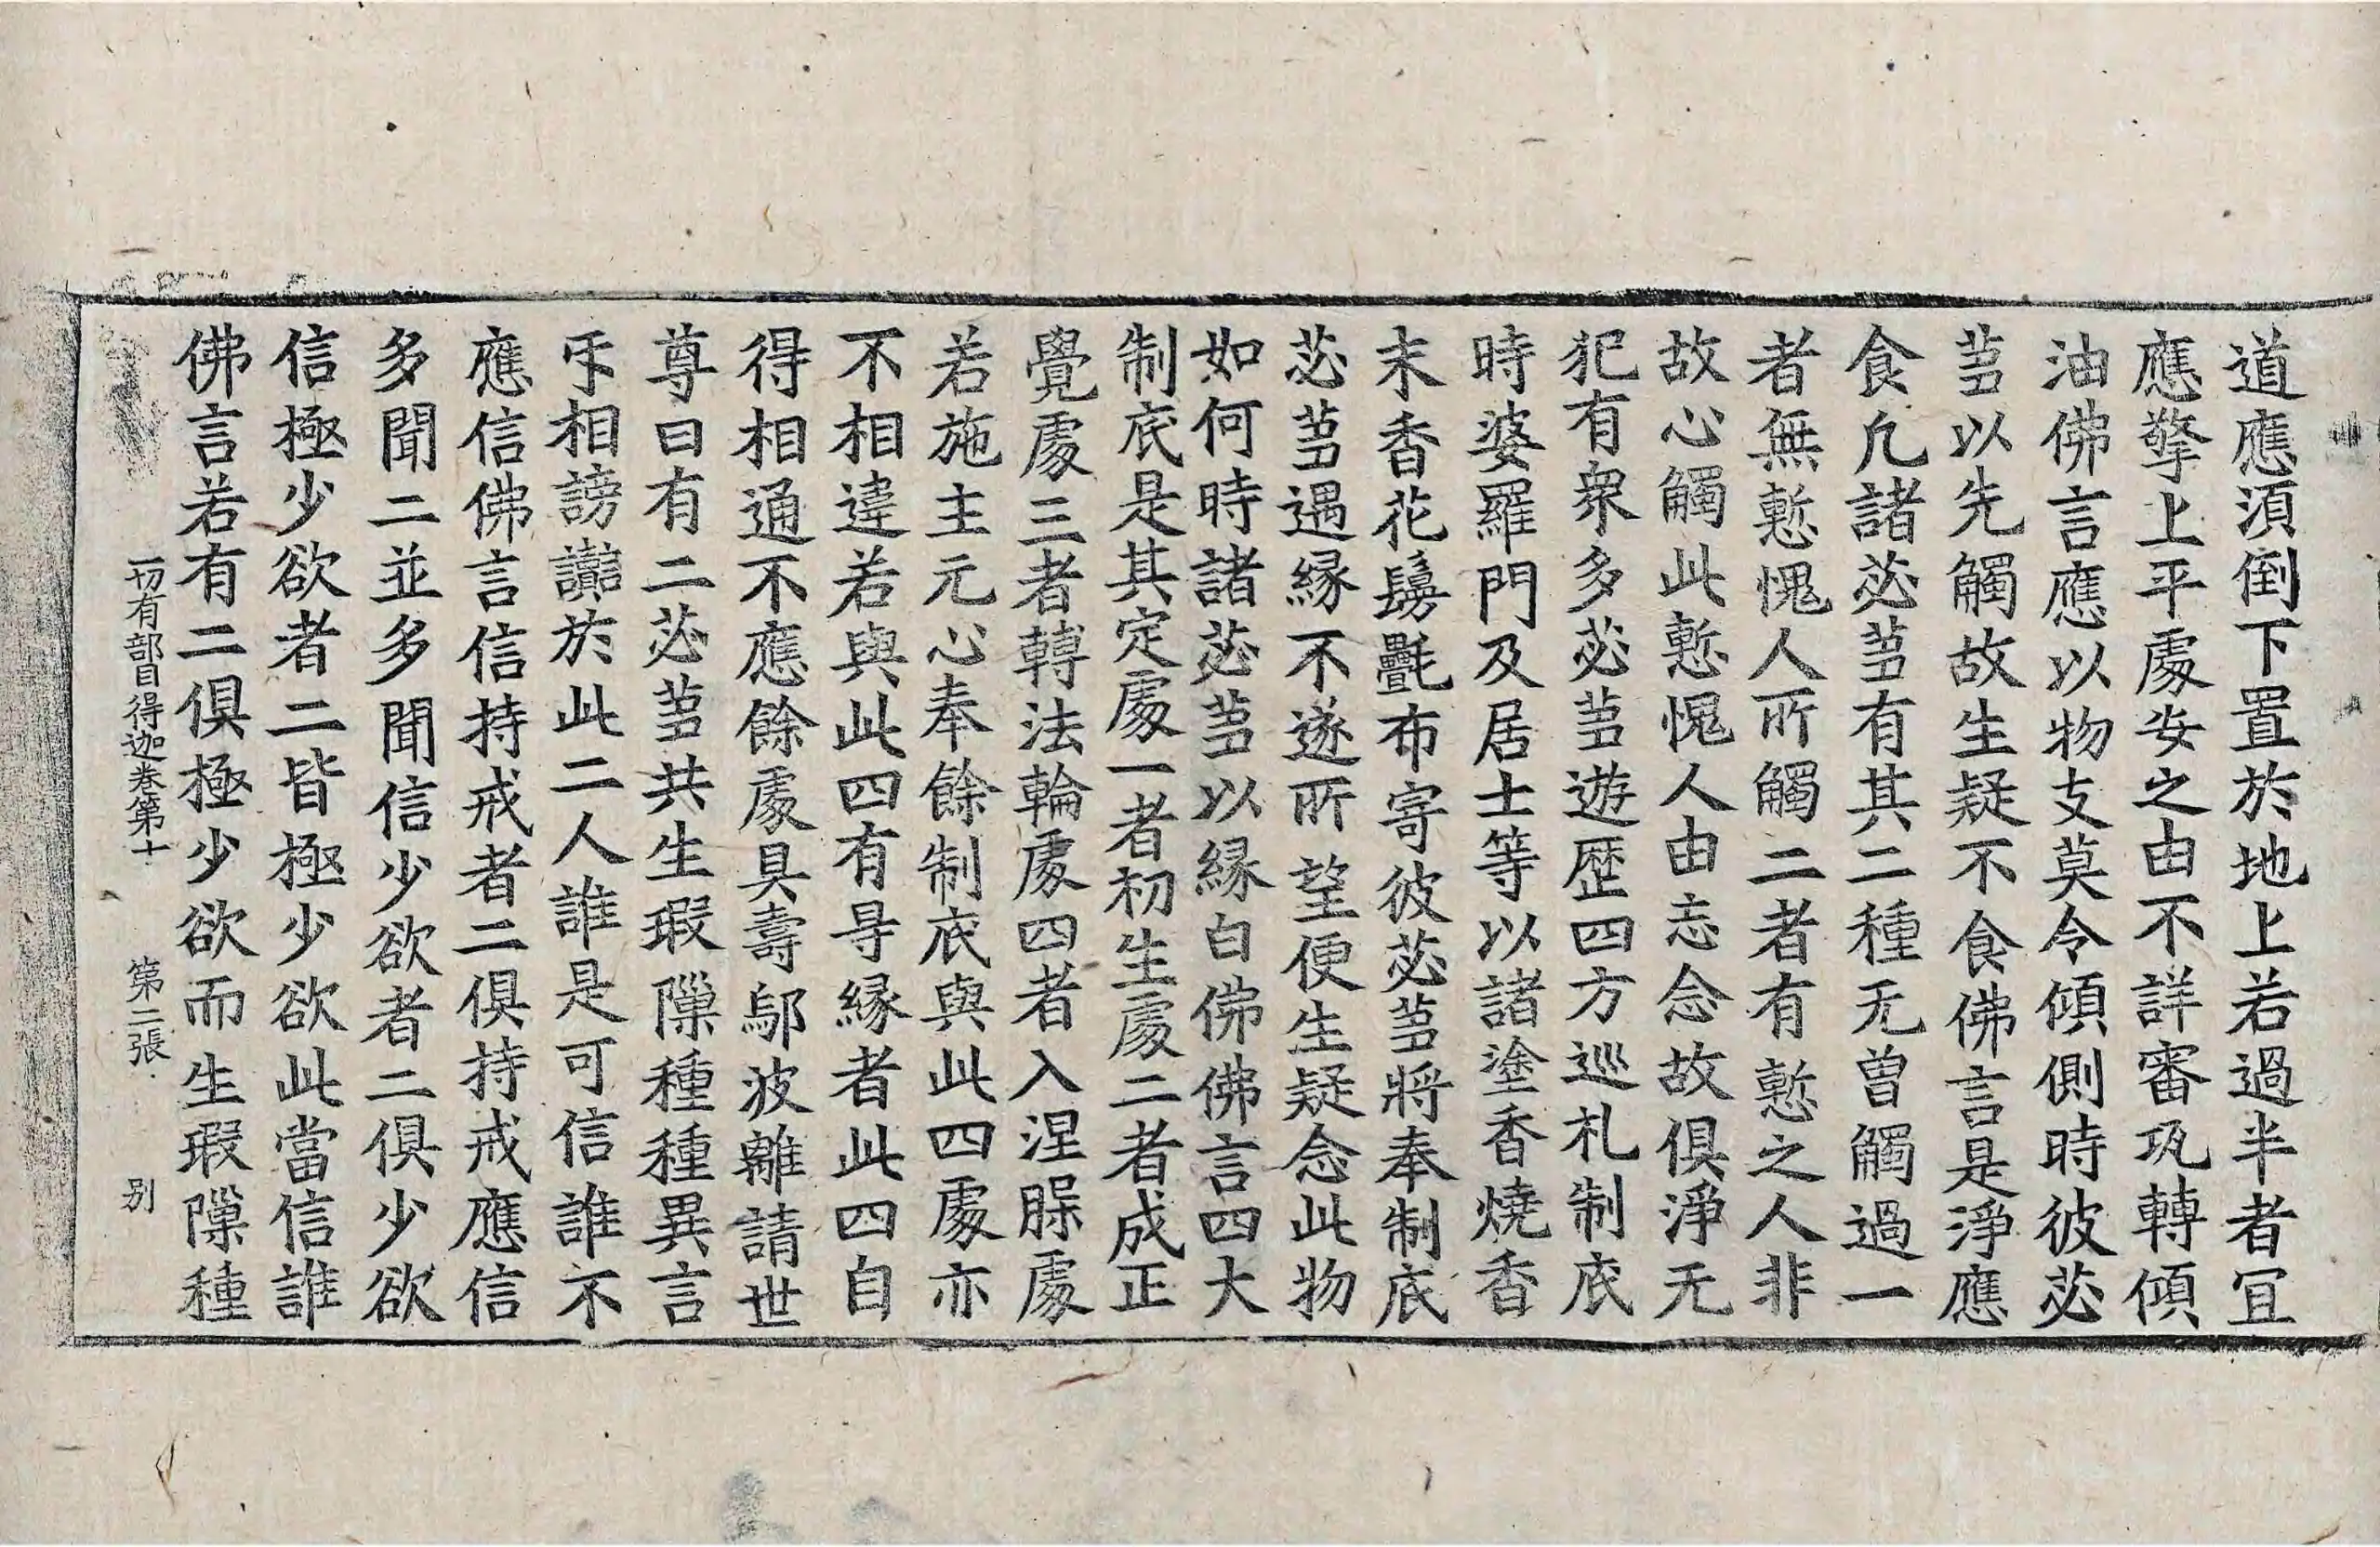 道應湏倒下置於地上若過半者冝
應擎上平䖏安之由不詳審致轉傾
油佛言應以物支莫令傾側時彼苾
芻以先觸故生疑不食佛言是淨應
食凢諸苾芻有其二種无曾觸過一
者無慙愧人所觸二者有慙之人非
故心觸此慙愧人由忘念故俱淨无
犯有衆多苾芻遊歷四方巡礼制底
時婆羅門及居士等以諸塗香燒香
末香花鬘㲲布寄彼苾芻將奉制底
苾芻遇縁不遂所望便生疑念此物
如何時諸苾芻以縁白佛佛言四大
制底是其定䖏一者初生䖏二者成正
覺䖏三者轉法輪䖏四者入涅槃䖏
若施主元心奉餘制底與此四䖏亦
不相違若與此四有㝵縁者此四自
得相通不應餘䖏具壽鄔波離請世
尊曰有二苾芻共生瑕隟種種異言
㸦相謗讟於此二人誰是可信誰不
應信佛言信持戒者二俱持戒應信
多聞二並多聞信少欲者二俱少欲
信極少欲者二皆極少欲此當信誰
佛言若有二俱極少欲而生瑕隟種
一切有部目得迦卷第十 第二張 别